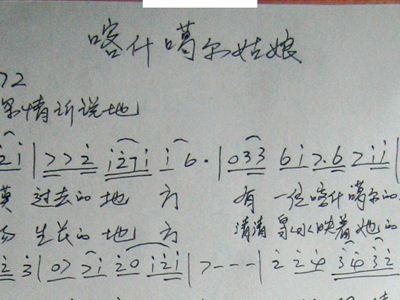 喀什噶尔姑娘
72
情诉说地
2̇i̇ | 772̇ i̇2̇7i̇ i̇ 6· | 033 6i̇7·6 7i̇i̇ |
过去的 地 方 有 一位喀什噶尔的
生长的 地 方 清清泉水映着她的
2̇ 3̇ | 07 7i̇ 2̇0 i̇2̇i̇ | 7 - - - | 2̇ 2̇ 4̇ 3̇4̇3̇2̇